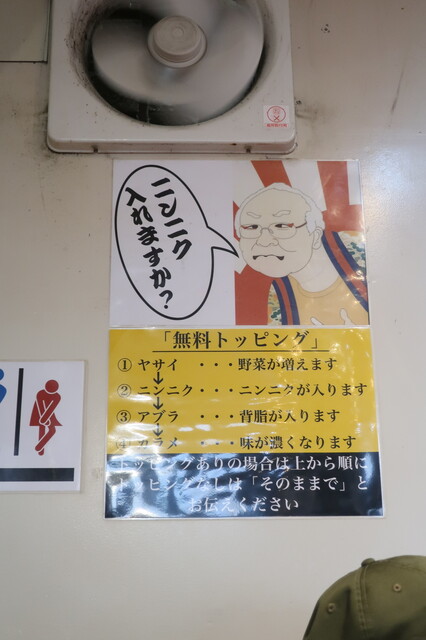 ニンニク
入れますか?
「無料トッピング」
① ヤサイ ・・・野菜が増えます
② ニンニク ・・・ニンニクが入ります
③ アブラ ・・・背脂が入ります
④ カラメ ・・・味が濃くなります
トッピングありの場合は上から順に
トッピングなしは「そのままで」と
お伝えください